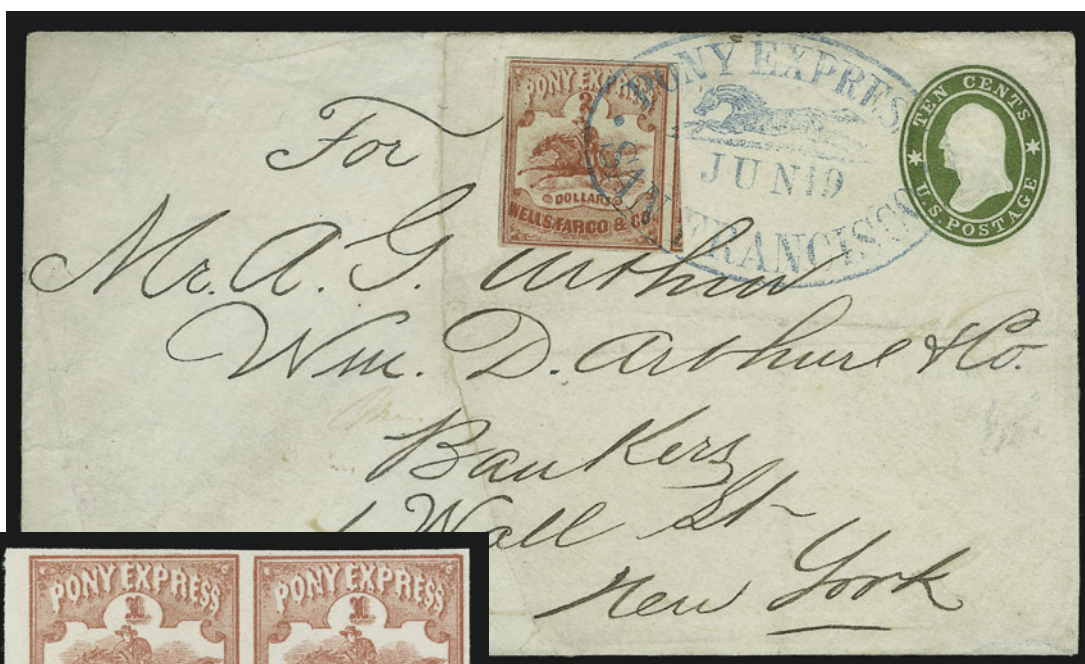 PONY EXPRESS
2
DOLLARS
WELLS, FARGO & CO.
PONY EXPRESS
JUN 19
SAN FRANCISCO
TEN CENTS
U.S. POSTAGE
For
Mr. A. G. Arthur
Wm. D. Arthure & Co.
Bankers
1 Wall St
New York
PONY EXPRESS
1
PONY EXPRESS
1